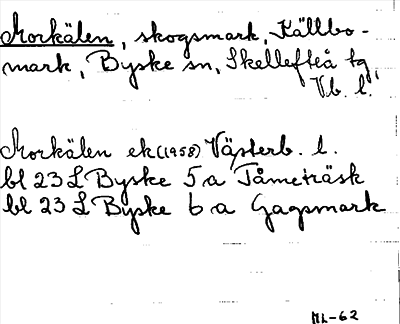 Morkälen, skogsmark, Källbo-
mark, Byske sn, Skellefteå tg,
Vb. l.
Morkälen ek (1958) Västerb. l.
bl 23 L Byske 5 a Tåmeträsk
bl 23 L Byske 6 a Gagsmark
ML-62